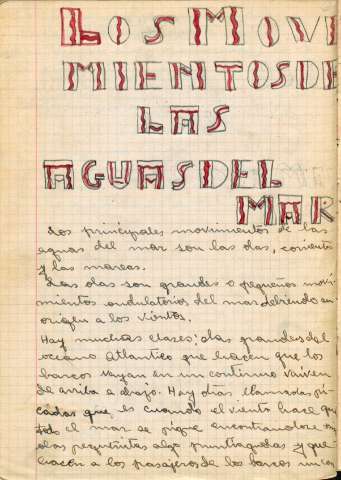 LOS MOVI
MIENTOS DE
LAS
AGUAS DEL
MAR
Los principales movimientos de las
aguas del mar son las olas, corrientes
y las mareas.
Las olas son grandes o pequeños movi
mientos ondulatorios del mar debiendo su
origen a los vientos.
Hay muchas clases: olas grandes del
océano Atlantico que hacen que los
barcos vayan en un continuo vaiven
de arriba a abajo. Hay otras llamadas pi
cadas que es cuando el viento hace que
todo el mar se pique encontrandose con
olas pequeñitas algo puntiagudas y que
hacen a los pasajeros de los barcos